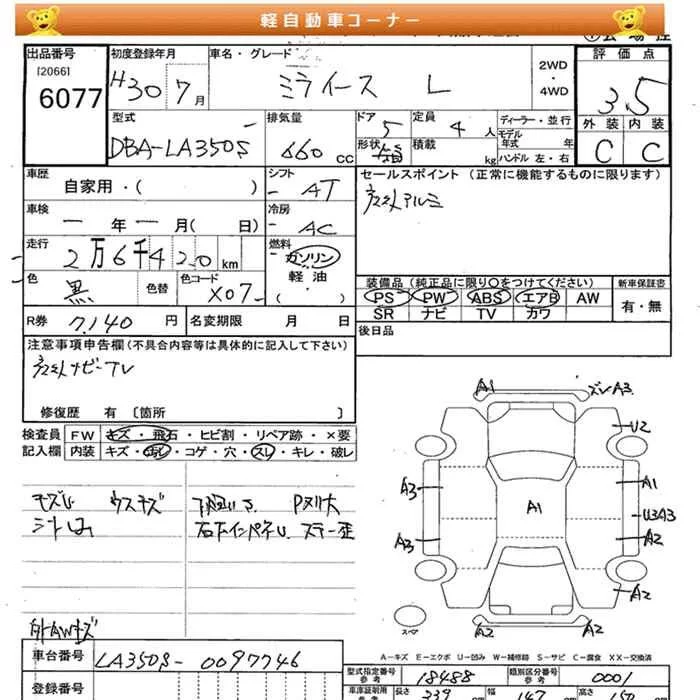 軽自動車コーナー
出品番号 初度登録年月 車名・グレード 評価点
[2066]
6077 H30年7月 ミライース L 2WD・4WD 3.5
外装 内装
C C
型式 排気量 ドア 定員 ディーラー・並行
DBA-LA350S 660CC 5 4人 モデル年式 年
形状 積載 kg ハンドル 左・右
車歴 シフト セールスポイント (正常に機能するものに限ります)
自家用・( ) AT 社外アルミ
車検 冷房
ー年ー月( 日) AC
走行 燃料
2万6千420km ガソリン
軽油
( ・ )
色 色替 色コード
黒 X07
装備品 (純正品に限り○をつけてください) 新車保証書
PS PW ABS エアB AW 有・無
SR ナビ TV カワ
R券 7,140円 名変期限 月 日 後日品
注意事項申告欄 (不具合内容等は具体的に記入して下さい)
社外ナビーTV
修復歴 有 〔箇所 〕
検査員 FW キズ・飛石・ヒビ割・リペア跡・×要
記入欄 内装 キズ・汚し・コゲ・穴・スレ・キレ・破レ
キズU ウスキズ
A1 ズレA3
U2
A3 A1 A1
U3A3
A3 A2
A2
スペア A2 A2
外AWキズ
A-キズ E-エクボ U-凹み W-補修跡 S-サビ C-腐食 XX-交換済
車台番号 LA350S-0097746
型式指定番号 参考 18488 類別区分番号 参考 0001
登録番号
車庫証明用 参考 長さ 339 幅 147 高さ 150